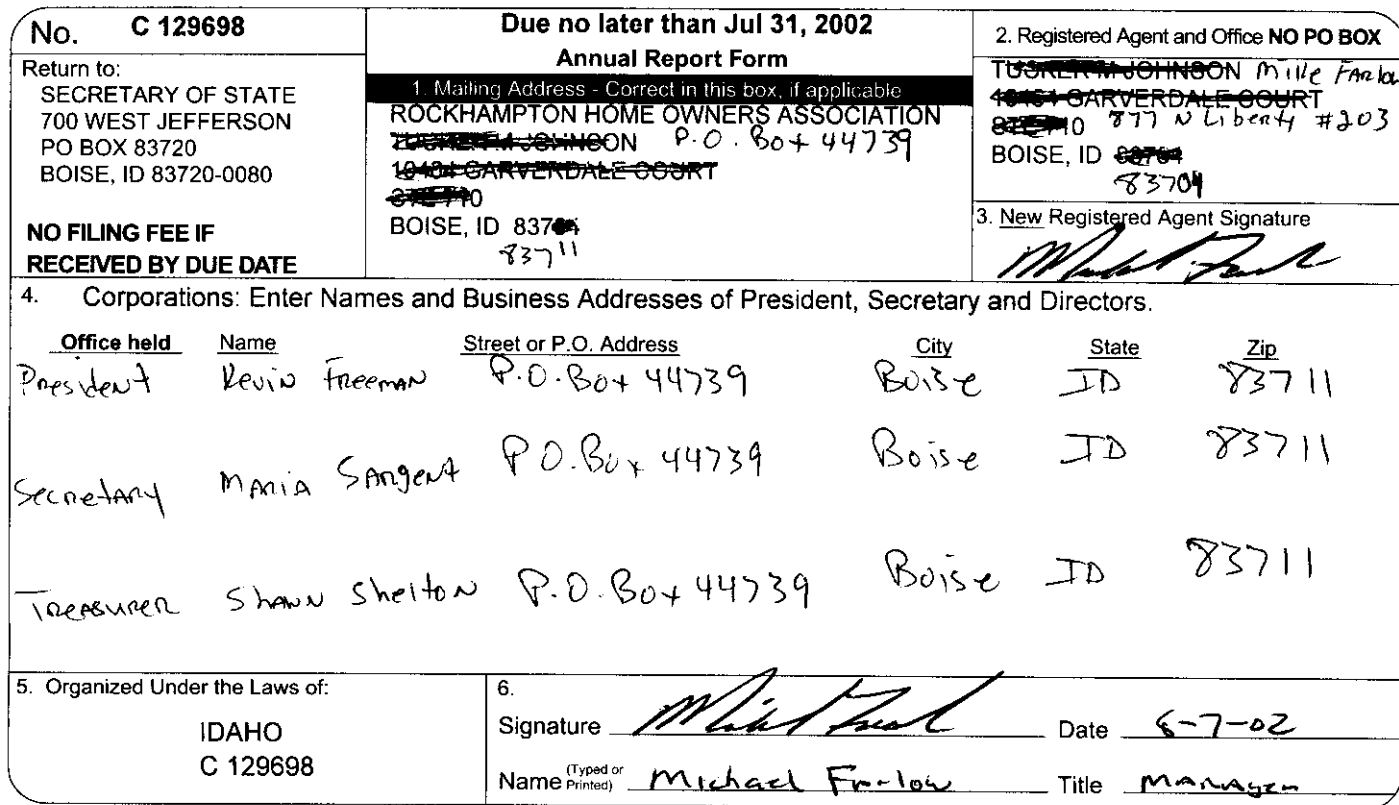 No. C 129698
Return to:
SECRETARY OF STATE
700 WEST JEFFERSON
PO BOX 83720
BOISE, ID 83720-0080
NO FILING FEE IF
RECEIVED BY DUE DATE
Due no later than Jul 31, 2002
Annual Report Form
1. Mailing Address - Correct in this box, if applicable
ROCKHAMPTON HOME OWNERS ASSOCIATION
TUCKER M JOHNSON P.O. Box 44739
10464 GARVERDALE COURT
STE 710
BOISE, ID 83704
83711
2. Registered Agent and Office NO PO BOX
TUCKER M JOHNSON Mike Farlow
10464 GARVERDALE COURT
STE 710 877 N Liberty #203
BOISE, ID 83704
83704
3. New Registered Agent Signature
4. Corporations: Enter Names and Business Addresses of President, Secretary and Directors.
Office held Name Street or P.O. Address City State Zip
President Kevin Freeman P.O. Box 44739 Boise ID 83711
Secretary Maria Sargent P.O. Box 44739 Boise ID 83711
Treasurer Shawn Shelton P.O. Box 44739 Boise ID 83711
5. Organized Under the Laws of:
IDAHO
C 129698
6.
Signature Date 6-7-02
Name (Typed or Printed) Michael Farlow Title Manager